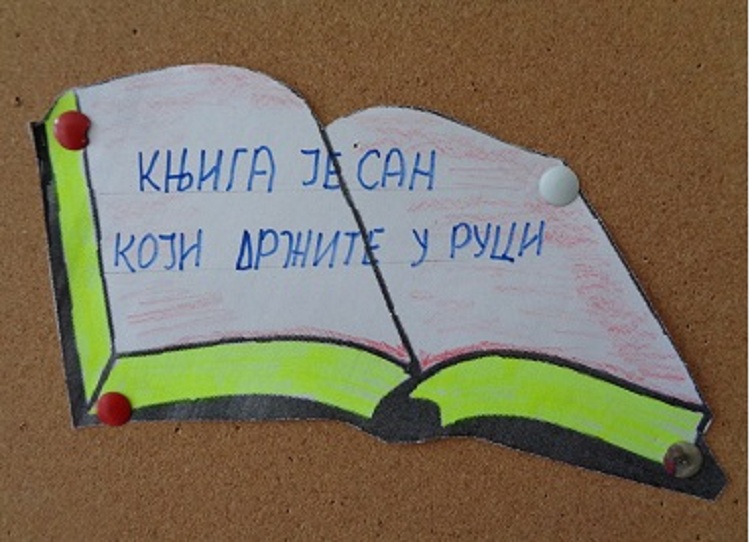 КЊИГА ЈЕ САН
КОЈИ ДРЖИТЕ У РУЦИ